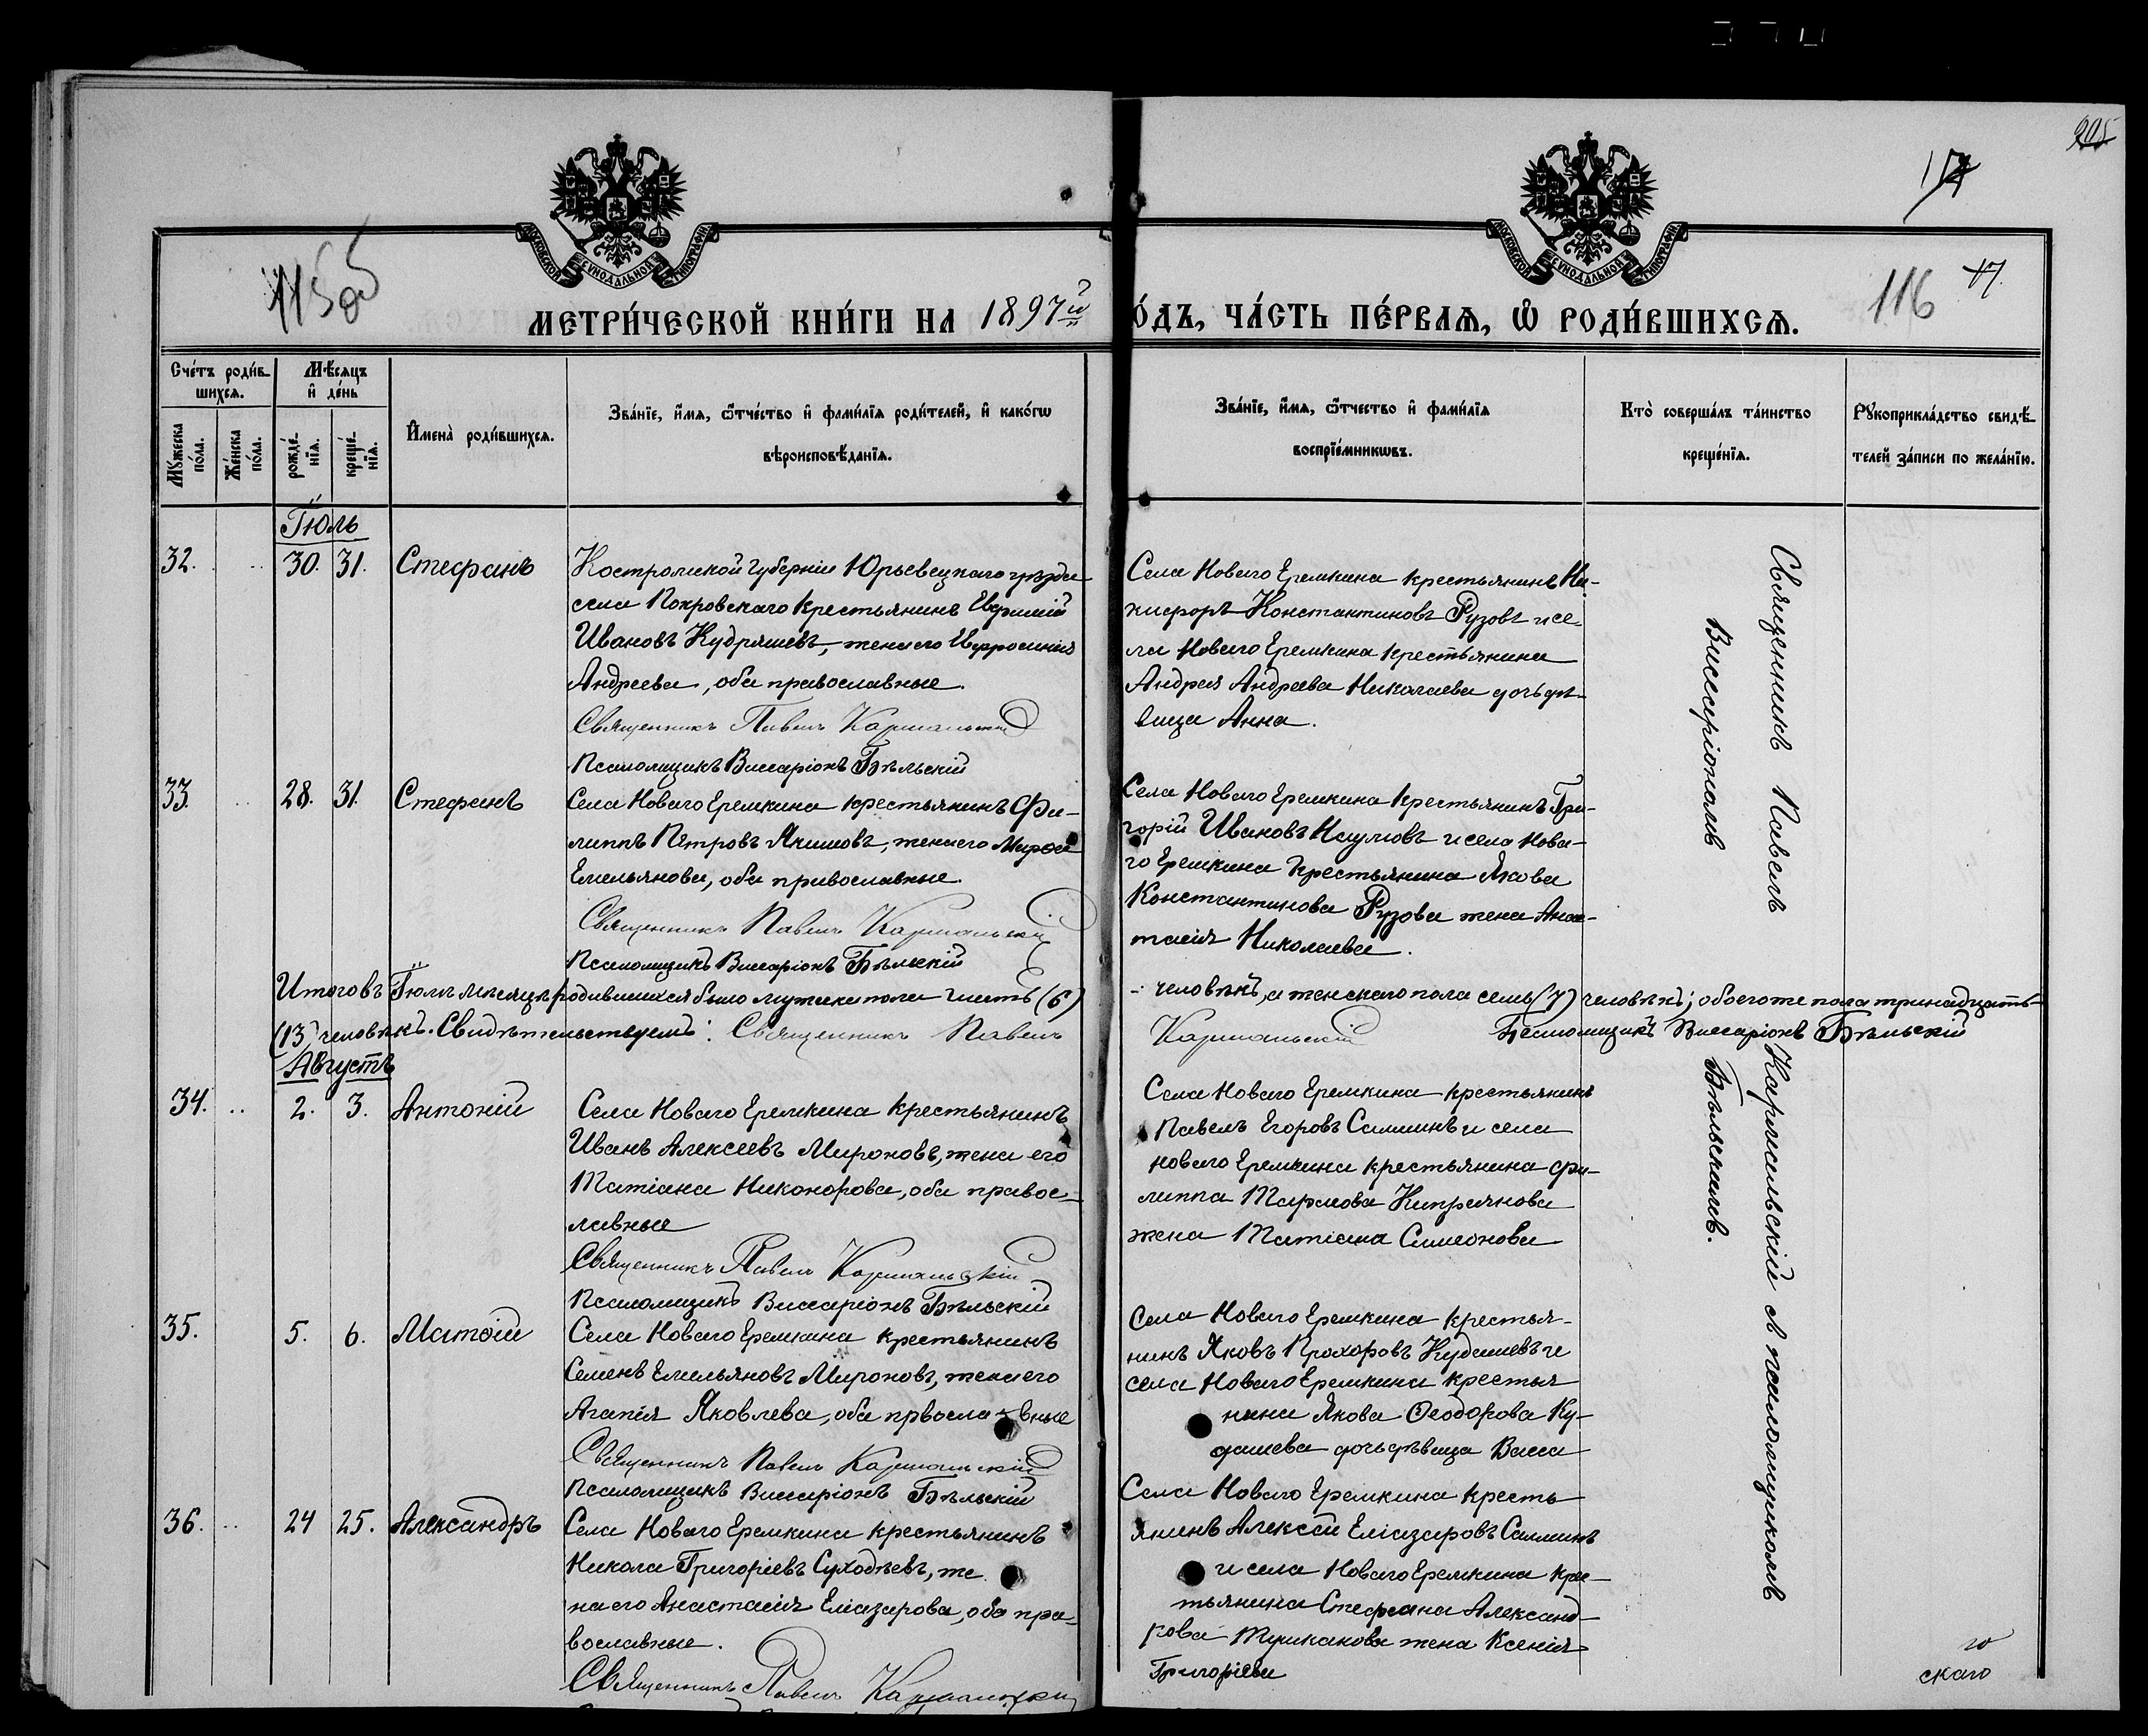 205
117
115об
116
17.
МОСКОВСКОЙ СѴНОДАЛЬНОЙ ТИПОГРАФІИ
МОСКОВСКОЙ СѴНОДАЛЬНОЙ ТИПОГРАФІИ
МЕТРИ́ЧЕСКОЙ КНИ́ГИ НА 1897й
ОДЪ, ЧА́СТЬ ПЕ́РВАѦ, Ѿ РОДИ́ВШИХСѦ.
Сче́тъ роди́в-
шихсѧ.
Мѣ́сѧцъ
и҆ де́нь
Мꙋ́жеска
по́ла.
Же́нска
по́ла.
рожде́-
нїѧ.
креще́-
нїѧ.
И҆мена̀ роди́вшихсѧ.
Зва́нїе, и҆́мѧ, ѻ҆́тчество и҆ фами́лїѧ роди́телей, и҆ како́гѡ
вѣроисповѣ́данїѧ.
Зва́нїе, и҆́мѧ, ѻ҆́тчество и҆ фами́лїѧ
воспрїе́мникѡвъ.
Кто̀ соверша́лъ та́инство
креще́нїѧ.
Рꙋкоприкла́дство свидѣ́-
телей за́писи по жела́нїю.
Іюль
32. 30. 31. Стефанъ
Костромской Губерніи Юрьевецкаго уѣзда
села Покровскаго крестьянинъ Евфимій
Ивановъ Кудряшевъ, жена его Евфросинія
Андреева, оба православные.
Священникъ Павелъ Кармальскій
Псаломщикъ Виссаріонъ Бѣльскій
Села Новаго Еремкина крестьянинъ Ни-
кифоръ Константиновъ Рузовъ и се-
ла Новаго Еремкина крестьянина
Андрея Андреева Николаева дочь дѣ-
вица Анна.
33. 28. 31. Стефанъ
Села Новаго Еремкина крестьянинъ Фи-
липпъ Петровъ Якимовъ, жена его Марѳа
Емельянова, оба православные.
Священникъ Павелъ Кармальскій
Псаломщикъ Виссаріонъ Бѣльскій
Села Новаго Еремкина крестьянинъ Гри-
горій Ивановъ Наумовъ и села Нова-
го Еремкина крестьянина Якова
Константинова Рузова жена Анас-
тасія Николаева.
Итого въ Іюлѣ мѣсяцѣ родившихся было мужска пола шесть (6)
человѣкъ, а женскаго пола семь (7) человѣкъ; обоего же пола тринадцать
(13) человѣкъ. Свидѣтельствуемъ: Священникъ Павелъ
Кармальскій Псаломщикъ Виссаріонъ Бѣльскій
Августъ
34. 2. 3. Антоній
Села Новаго Еремкина крестьянинъ
Иванъ Алексеевъ Мироновъ, жена его
Татіана Никонорова, оба правос-
лавные
Священникъ Павелъ Кармальскій
Псаломщикъ Виссаріонъ Бѣльскій
Села Новаго Еремкина крестьянинъ
Павелъ Егоровъ Самминъ и села
Новаго Еремкина крестьянина Фи-
липпа Киприянова
жена Татіана Симеонова
35. 5. 6. Матѳій
Села Новаго Еремкина крестьянинъ
Семенъ Емельяновъ Мироновъ, жена его
Агапія Яковлева, оба првославные
Священникъ Павелъ Кармальскій
Псаломщикъ Виссаріонъ Бѣльскій
Села Новаго Еремкина крестья-
нинъ Яковъ Прохоровъ Кудашевъ и
села Новаго Еремкина крестья
нина Якова Ѳеодорова Ку-
дашева дочь дѣвица Васса
36. 24 25. Александръ
Села Новаго Еремкина крестьянинъ
Никола Григоріевъ Суходѣевъ, же
на его Анастасія Еліазарова, оба пра-
вославные.
Священникъ Павелъ Кармальскій
Села Новаго Еремкина кресть-
янинъ Алексѣй Еліазаровъ Самминъ
и села Новаго Еремкина крес-
тьянина Стефана Александ-
рова Тушканова жена Ксенія
Григоріева
Священникъ Павелъ Кармальскій съ псаломщикомъ
Виссаріономъ Бѣльскимъ.
го
скаго